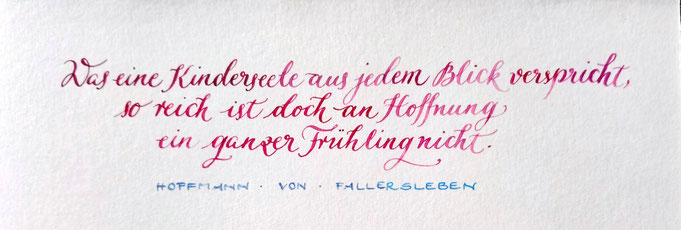 Was eine Kinderseele aus jedem Blick verspricht,
so reich ist doch an Hoffnung
ein ganzer Frühling nicht.
HOFFMANN · VON · FALLERSLEBEN